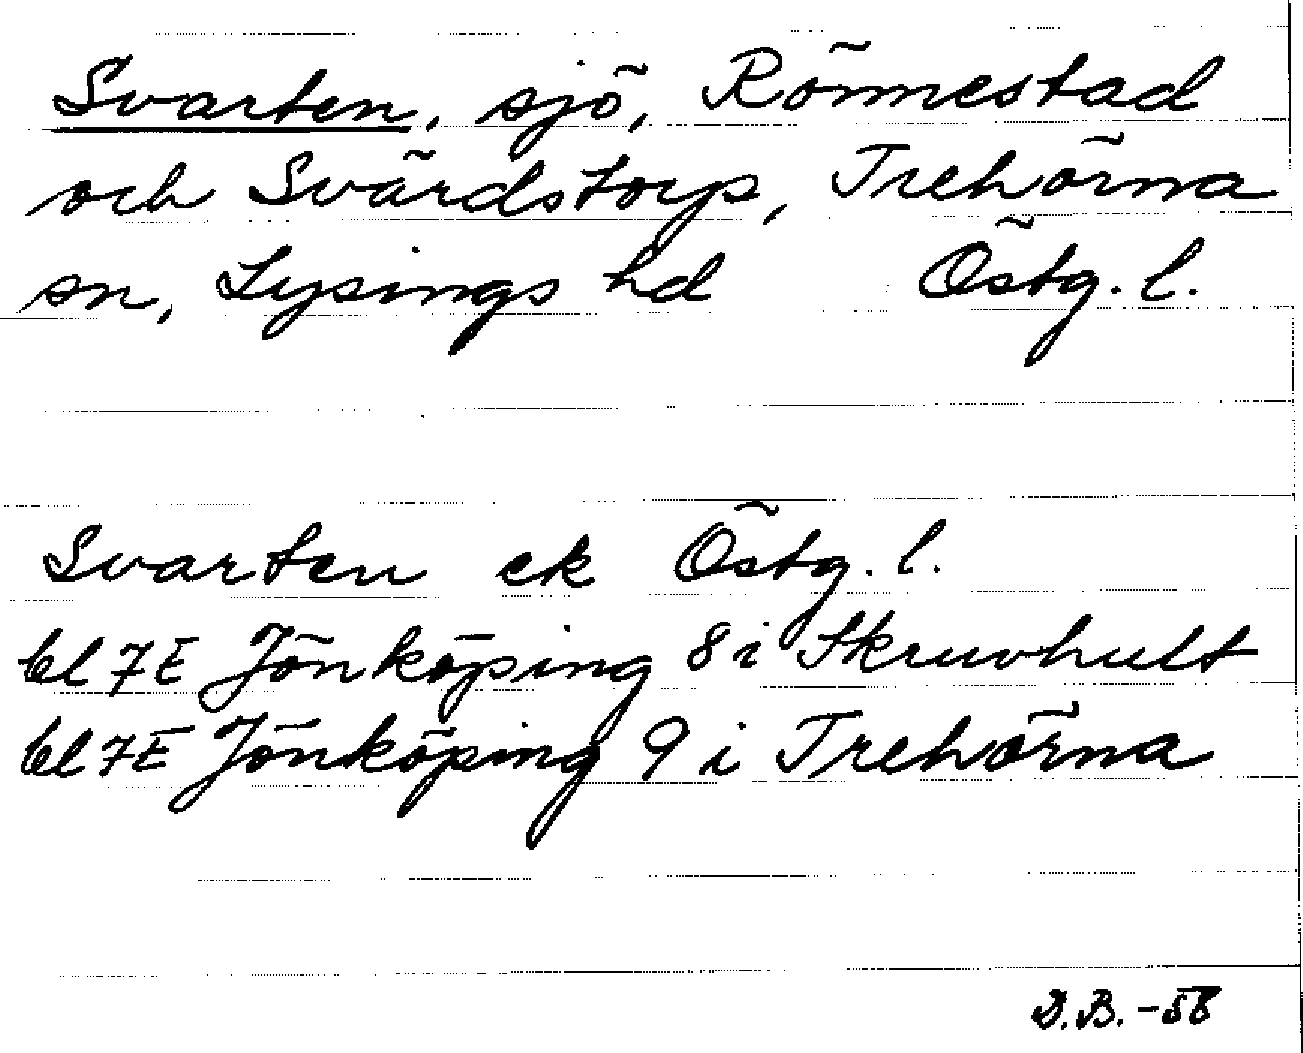 Svarten, sjö, Rönnestad
och Svärdstorp, Trehörna
sn, Lysings hd Östg. l.
Svarten ek Östg. l.
bl 7E Jönköping 8 i Skruvhult
bl 7E Jönköping 9 i Trehörna
D.B. -58